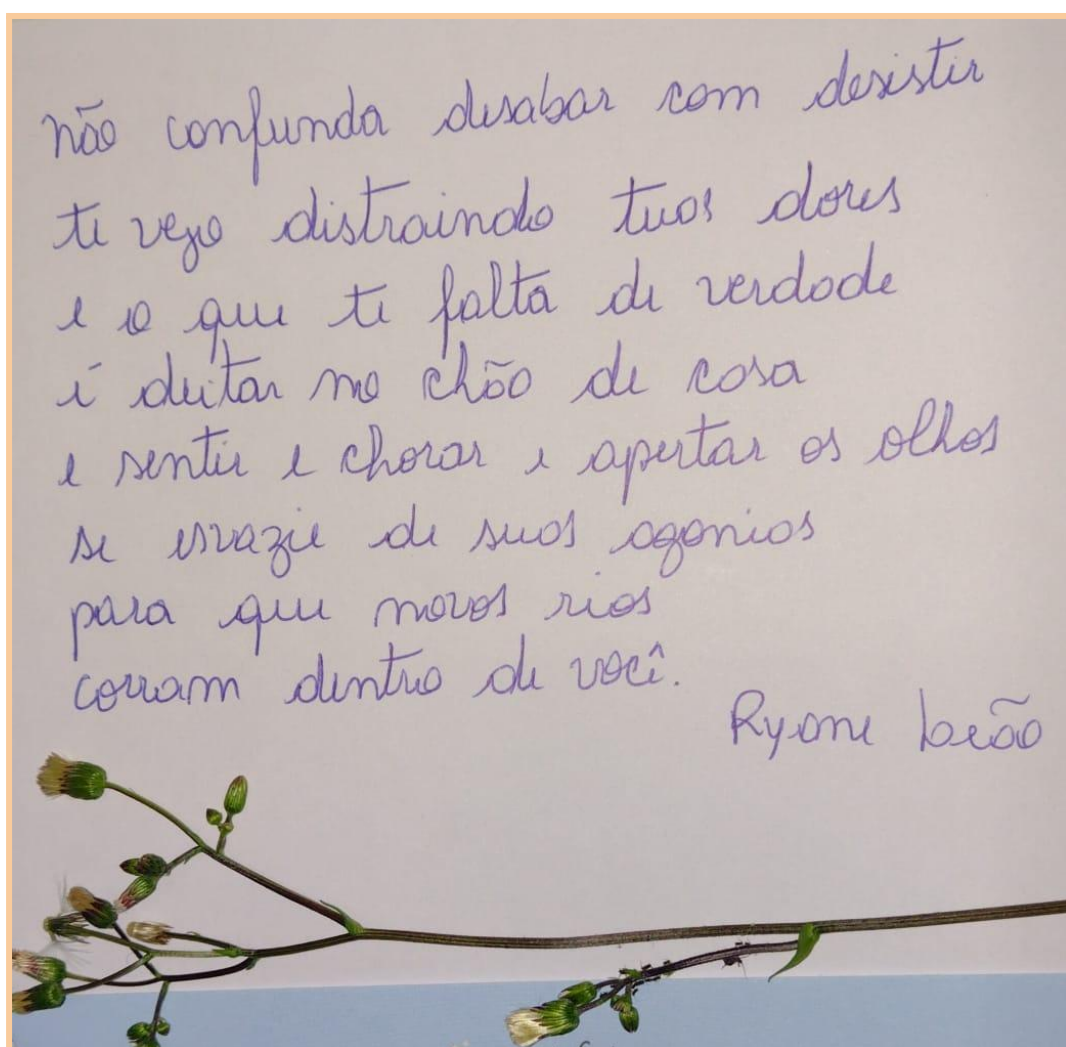 não confunda desabar com desistir
te vejo distraindo tuas dores
e o que te falta de verdade
é deitar no chão de casa
e sentir e chorar e apertar os olhos
se esvazie de suas agonias
para que novos rios
corram dentro de você.
Ryane Leão